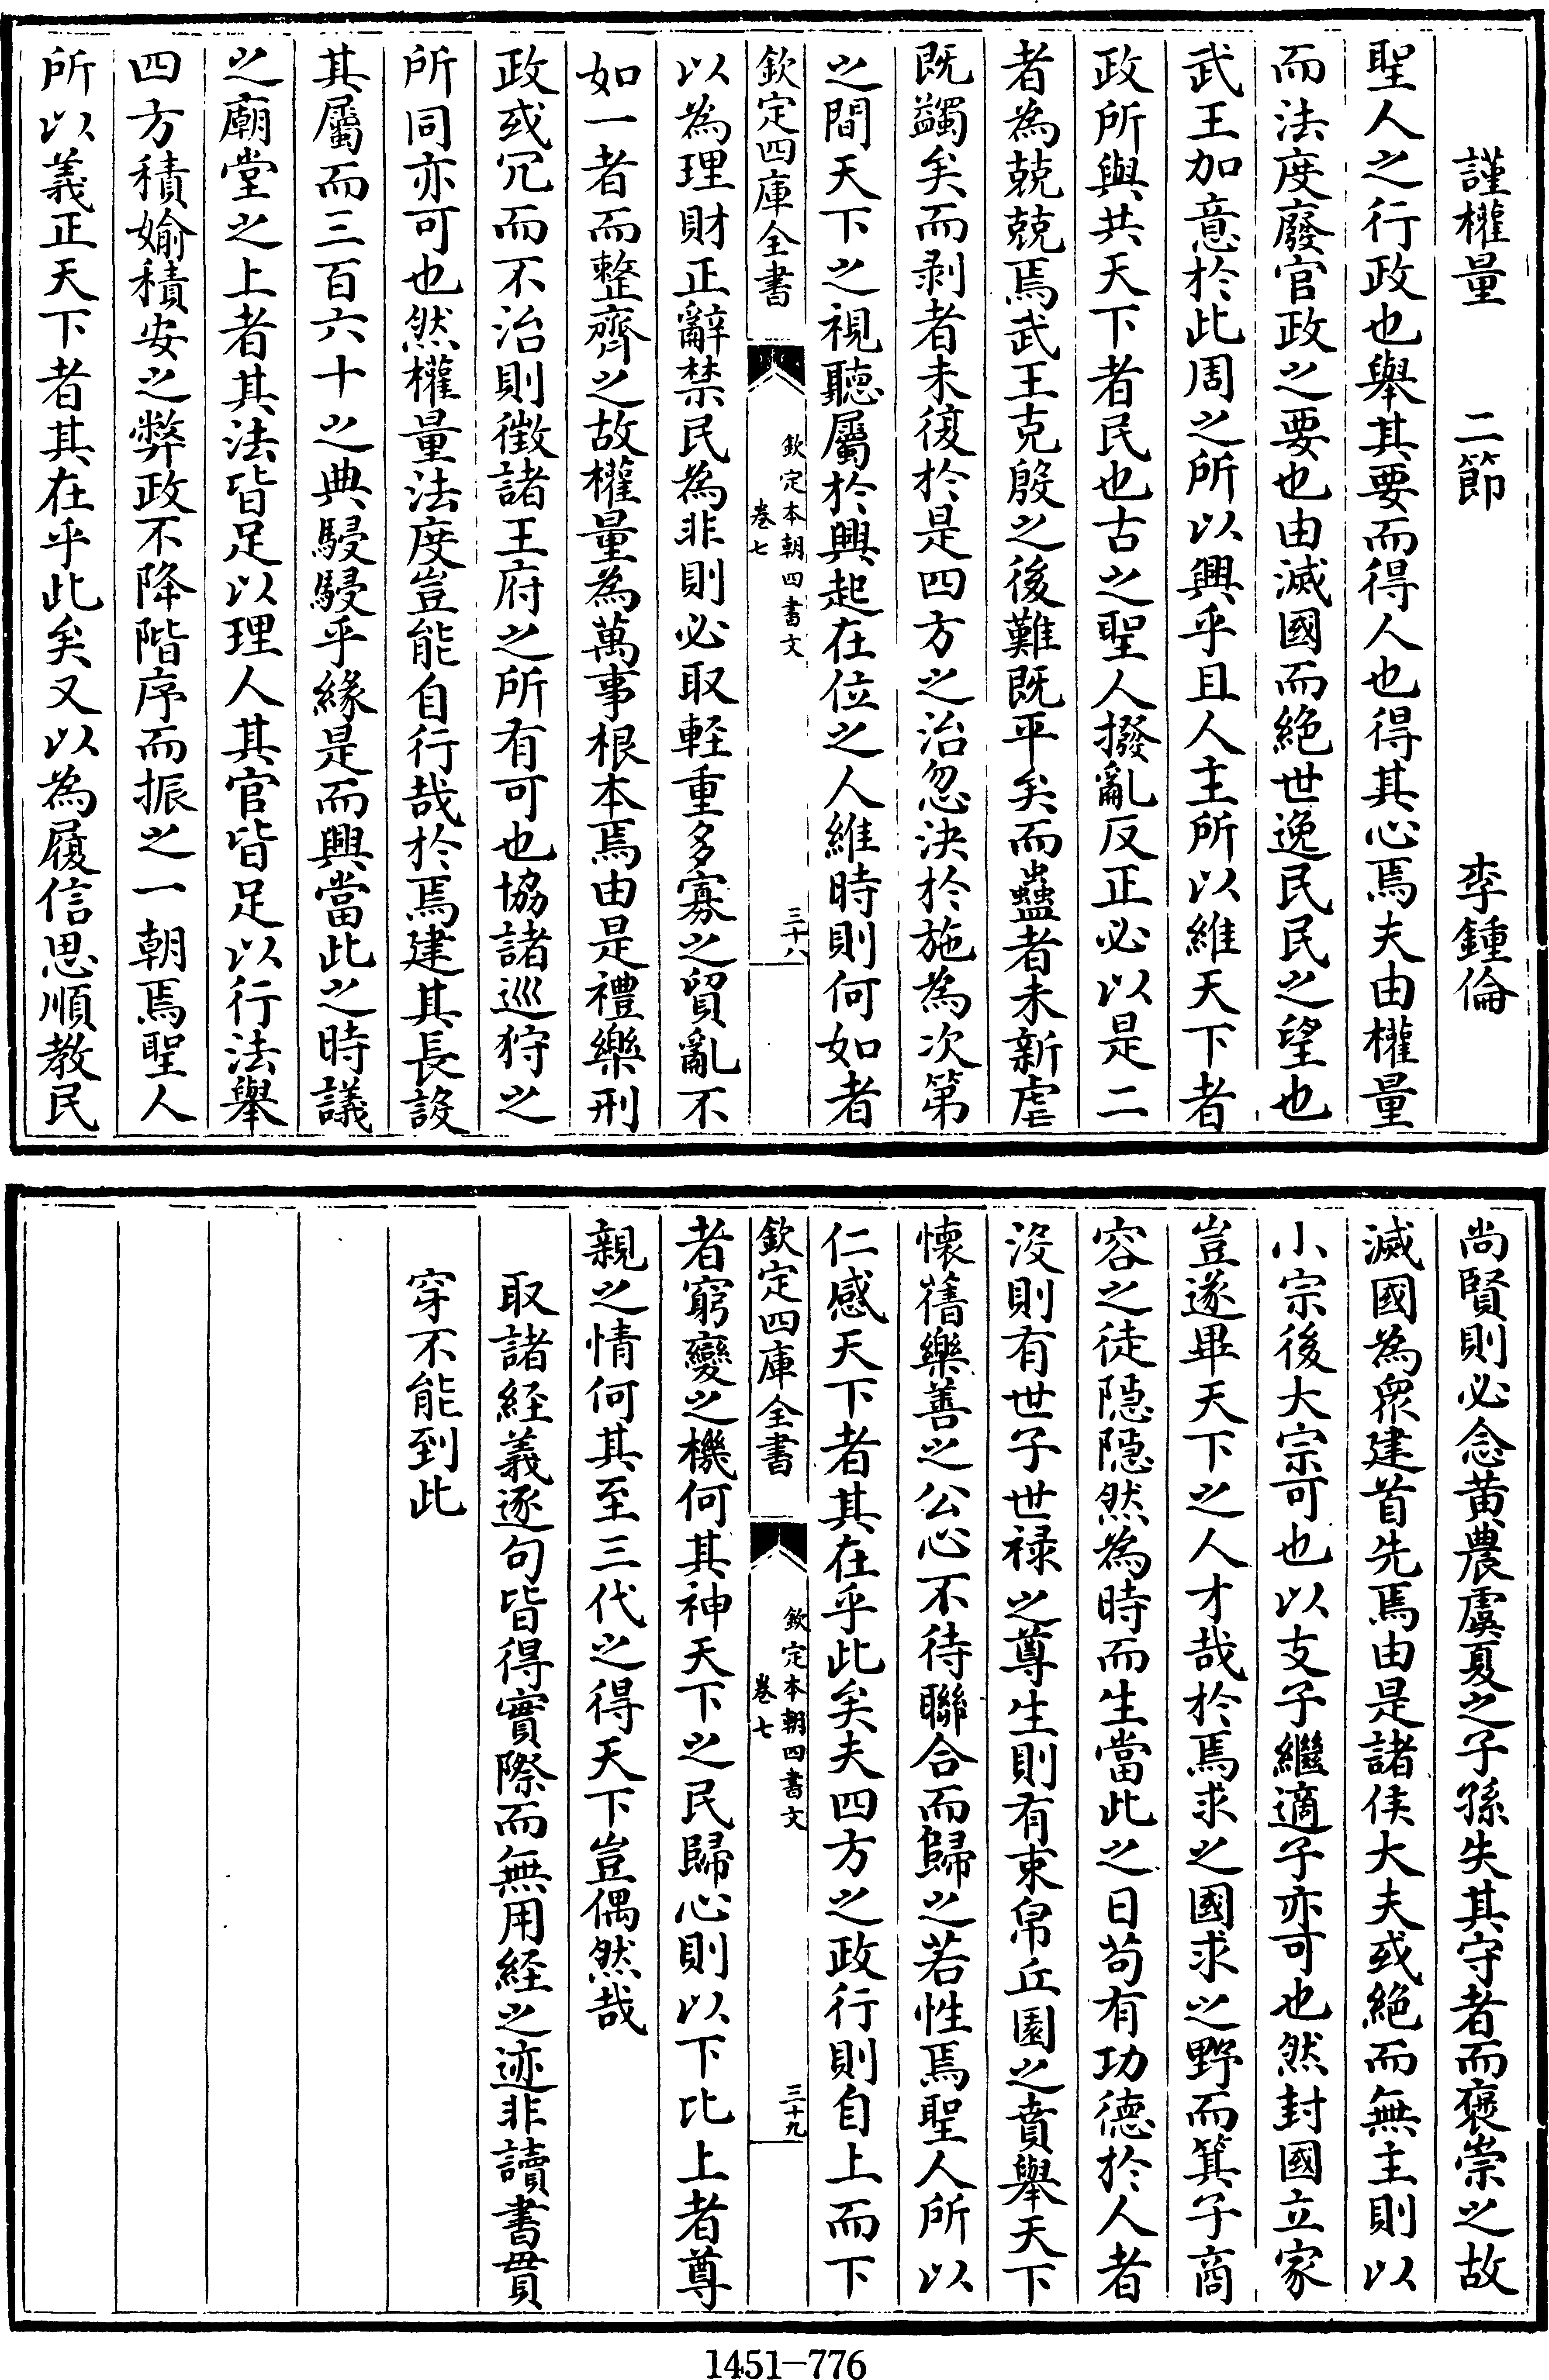 謹權量　二節　李鍾倫
聖人之行政也舉其要而得人也得其心焉夫由權量
而法度廢官政之要也由滅國而絶世逸民民之望也
武王加意於此周之所以興乎且人主所以維天下者
政所與共天下者民也古之聖人撥亂反正必以是二
者為兢兢焉武王克殷之後難既平矣而蠱者未新虐
既蠲矣而剥者未復於是四方之治忽決於施為次第
之間天下之視聽屬於興起在位之人維時則何如者
欽定四庫全書
欽定本朝四書文
卷七
三十八
以為理財正辭禁民為非則必取輕重多寡之貿亂不
如一者而整齊之故權量為萬事根本焉由是禮樂刑
政或冗而不治則徵諸王府之所有可也協諸巡狩之
所同亦可也然權量法度豈能自行哉於焉建其長設
其屬而三百六十之典駸駸乎緣是而興當此之時議
之廟堂之上者其法皆足以理人其官皆足以行法舉
四方積媮積安之弊政不降階序而振之一朝焉聖人
所以義正天下者其在乎此矣又以為履信思順教民
尚賢則必念黄農虞夏之子孫失其守者而褒崇之故
滅國為衆建首先焉由是諸侯大夫或絶而無主則以
小宗後大宗可也以支子繼適子亦可也然封國立家
豈遂畢天下之人才哉於焉求之國求之野而箕子商
容之徒隠隠然為時而生當此之日苟有功德於人者
沒則有世子世禄之尊生則有束帛丘園之賁舉天下
懷舊樂善之公心不待聯合而歸之若性焉聖人所以
仁感天下者其在乎此矣夫四方之政行則自上而下
欽定四庫全書
欽定本朝四書文
卷七
三十九
者窮變之機何其神天下之民歸心則以下比上者尊
親之情何其至三代之得天下豈偶然哉
取諸經義逐句皆得實際而無用經之迹非讀書貫
穿不能到此
1451-776